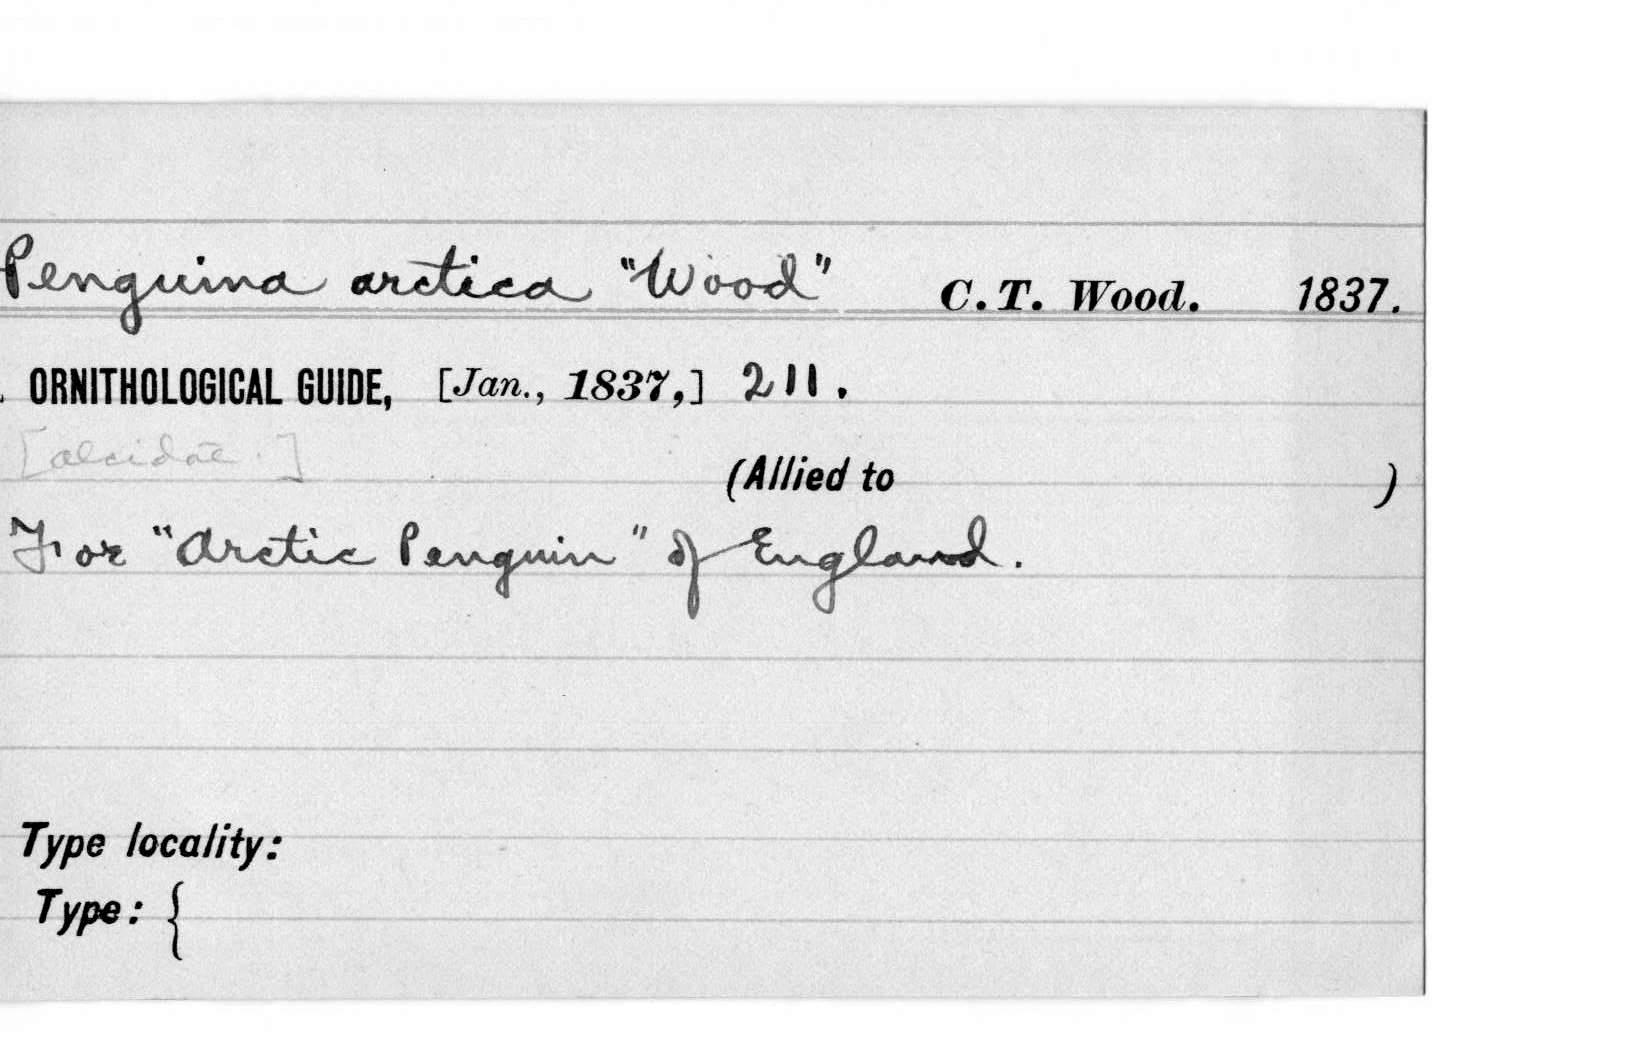 Penguina arctica "Wood" C. T. Wood. 1837.
. ORNITHOLOGICAL GUIDE, [Jan., 1837,] 211.
[alcidae.]
(Allied to )
For "Arctic Penguin" of England.
Type locality:
Type: {